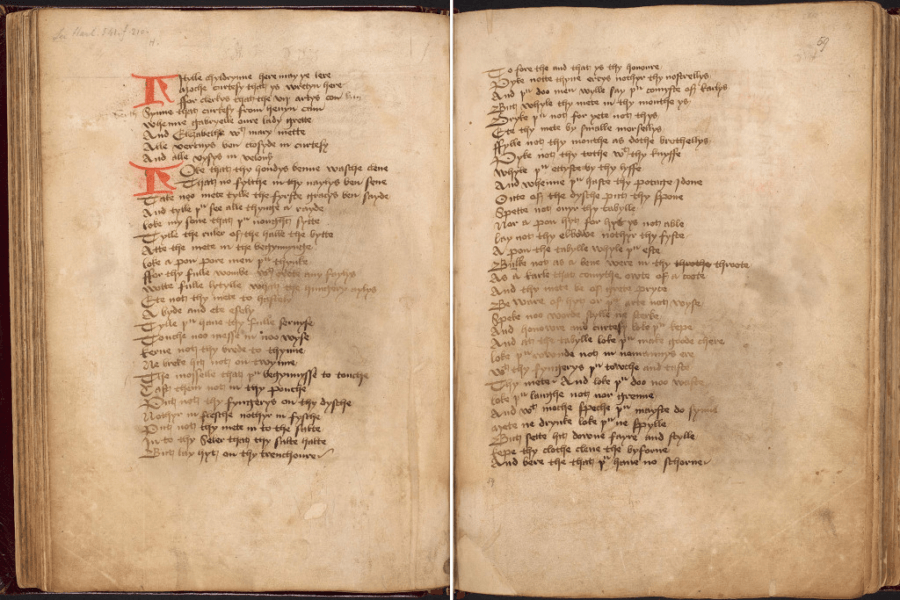 lytylle chyldrynne here may ye lere
Moche curtesy that ys wretyn here
ffor clerkys that the vij artys cun
Synne that curtesy from hevyn cam
Whenne gabryelle oure lady grette
And Elezabethe wt mary mette
Alle vertuys ben closyde in curtesy
And alle vysys in velony
Loke that thy hondys benne wasche clene
That no fylthe in thy naylys ben sene
Take noo mete tylle the fyrste gracys ben sayde
And tylle þu see alle thynge a rayde
loke my sone that þu nought sytte
Tylle the ruler of the halle the bytte
Atte the mete in the begynnynge
loke a pon pore men þu thynke
ffor thy fulle wombe
Wotte fulle lytylle what the hungery aylys
Ete not thy mete to hastely
A byde and ete esely
Tylle þu have thy fulle servyse
Touche noo messe in noo wyse
Kerve not thy brede to thynne
Ne breke hit not on twynne
The morselle that þu begynnyst to touche
Cast them not in thy pouche
Put not thy fyngerys on thy dysche
Nothyr in flesche nothyr in fysche
Put not thy mete in to the salte
In to thy seler that thy salte halte
But lay hyt on thy trenchoure
To fore the and that ys thy honoure
Pyke notte thyne erys nothyr thy nostrellys
And þu doo men wylle say þu comyste of karlys
But whyle thy mete in thy mouthe ys
Drynke þu not for yete not thys
Ete thy mete by smalle morsellys
ffylle not thy mouthe as dothe brothellys
Pyke not thy tothe wt thy knyffe
Whyle þu etyste by thy lyffe
And whenne þu haste thy potage I done
Owte of thy dysche put thy spone
Spette not ovyr thy tabylle
Nor a pon hyt for hyt ys not able
lay not thy elbowe nothyr thy fyste
A pon the tabylle whyle þu este
Bulke not as a bene were in thy throthe throote
As a karle that comythe owte of a cote
And thy mete be of grete pryce
Be ware of hyt or þu arte not wyse
Speke noo worde stylle ne sterke
And honowre and curtesy loke þu kepe
And at the tabylle loke þu make goode chere
loke þu rownde not in nomannys ere
Wt thy fyngerys þu towche and taste
Thy mete And loke þu doo noo waste
loke þu laughe not nor grenne
And wt moche speche þu mayste do synne
Mete ne drynke loke þu ne spylle
But sette hit downe fayre and stylle
Kepe thy clothe clene the byforne
And bere the that þu have no schorne
59